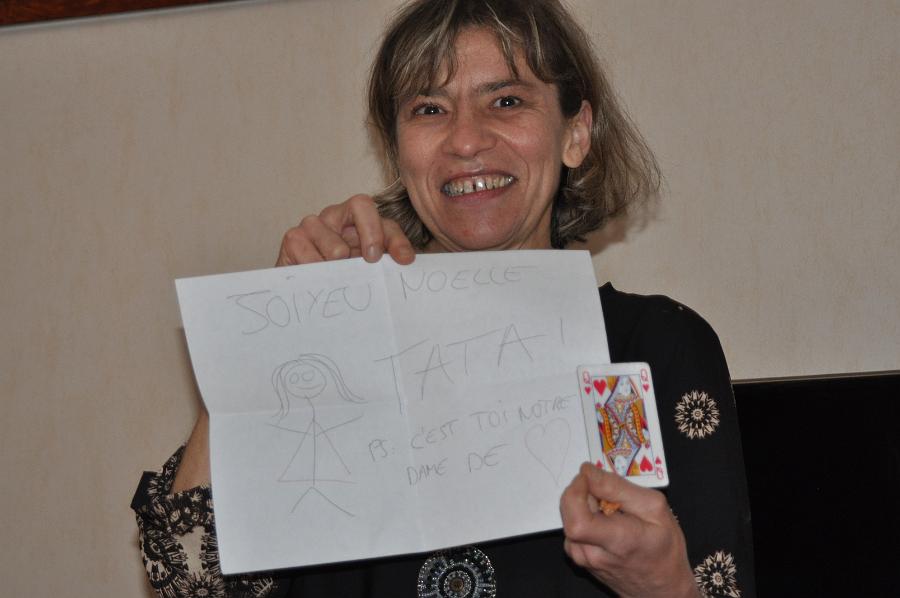 JOIYEU NOELLE
TATA !
PS: C'EST TOI NOTRE
DAME DE
Q
Q